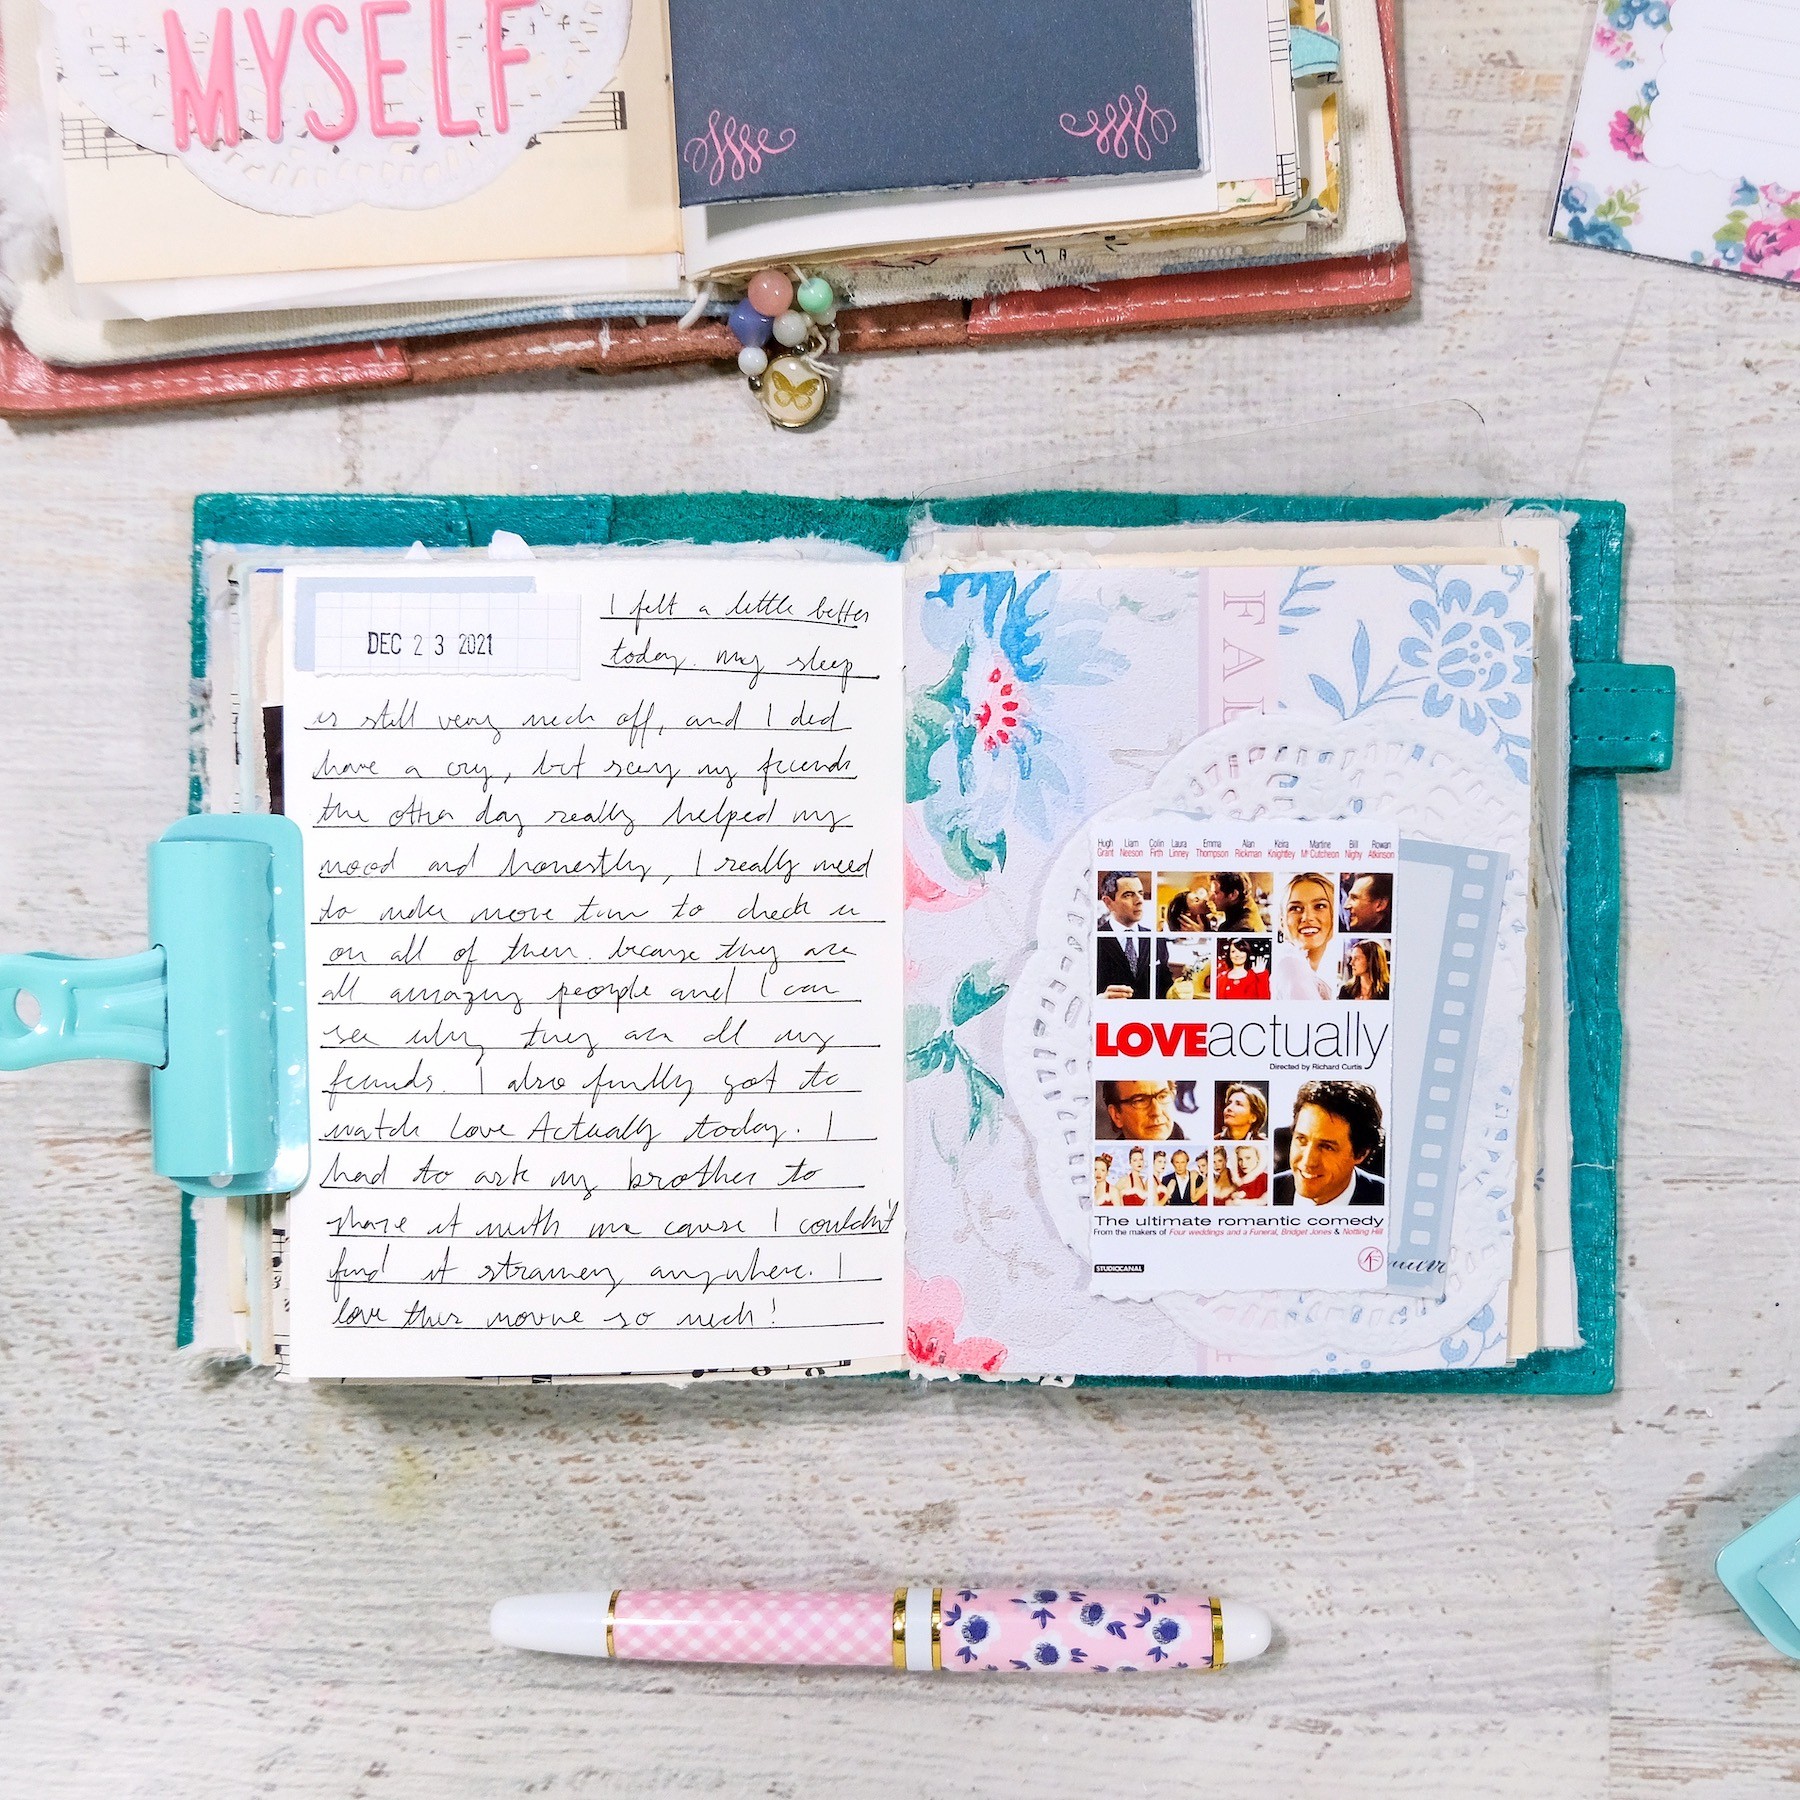 MYSELF
DEC 23 2021
I felt a little better
today. my sleep
is still very much off, and I did
have a cry, but seeing my friends
the other day really helped my
mood and honestly, I really need
to make more time to check in
on all of them. because they are
all amazing people and I can
see why they are all my
friends. I also finally got to
watch Love Actually today. I
had to ask my brother to
share it with me cause I couldn't
find it streaming anywhere. I
love this movie so much!
Hugh Grant Liam Neeson Colin Firth Laura Linney Emma Thompson Alan Rickman Keira Knightley Martine McCutcheon Bill Nighy Rowan Atkinson
LOVE actually
Directed by Richard Curtis
The ultimate romantic comedy
From the makers of Four weddings and a Funeral, Bridget Jones & Notting Hill
STUDIOCANAL